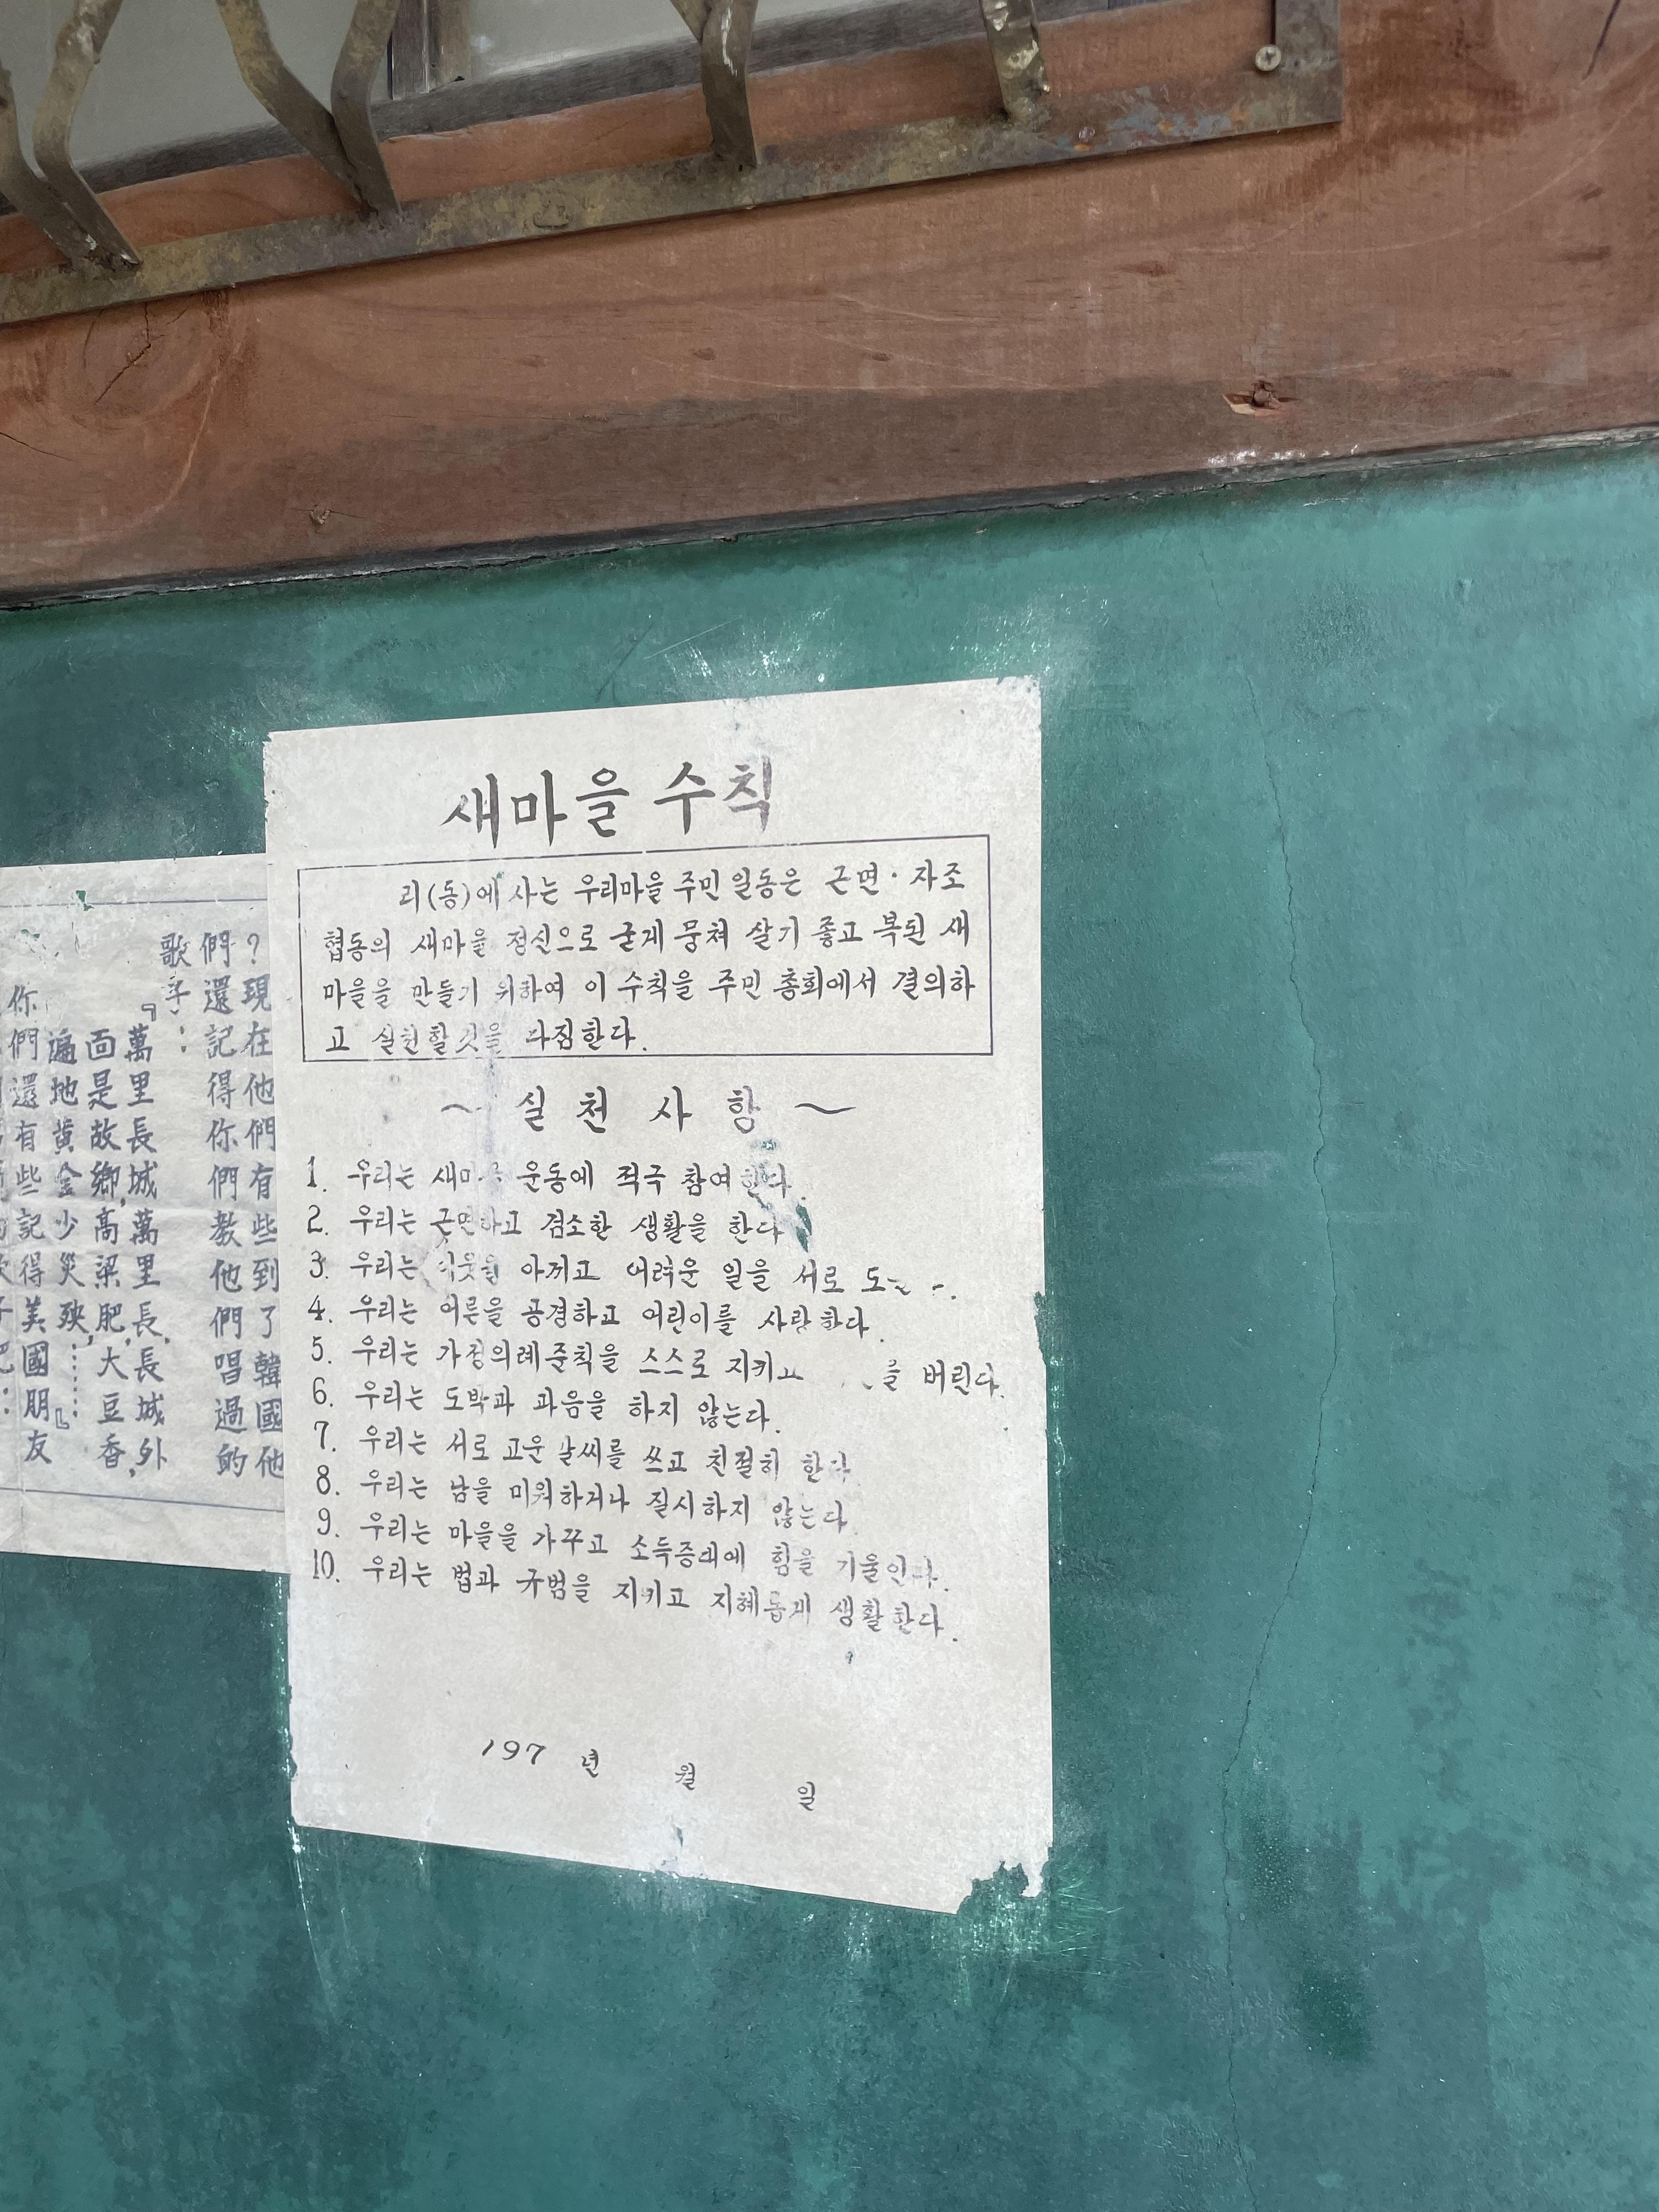 새마을 수칙
리(동)에 사는 우리마을 주민 일동은 근면·자조
협동의 새마을 정신으로 굳게 뭉쳐 살기 좋고 복된 새
마을을 만들기 위하여 이 수칙을 주민 총회에서 결의하
고 실천할 것을 다짐한다.
~ 실천 사항 ~
1. 우리는 운동에 적극 참여한다.
2. 우리는 근면하고 검소한 생활을 한다
3. 우리는 이웃을 아끼고 어려운 일을 서로
4. 우리는 어른을 공경하고 어린이를 사랑한다.
5. 우리는 가정의례준칙을 스스로 지키고 를 버린다.
6. 우리는 도박과 과음을 하지 않는다.
7. 우리는 서로 고운 말씨를 쓰고 친절히 한다
8. 우리는 남을 미워하거나 질시하지 않는다.
9. 우리는 마을을 가꾸고 소득증대에 힘을 기울인다.
10. 우리는 법과 규범을 지키고 지혜롭게 생활한다.
197 년 월 일
?現在他們有些到了韓國他
們還記得你們教他們唱過的
歌子:
『萬里長城萬里長,長城外
面是故鄉,高粱肥,大豆香,
遍地黃金少災殃,……』
你們還有些記得美國朋友